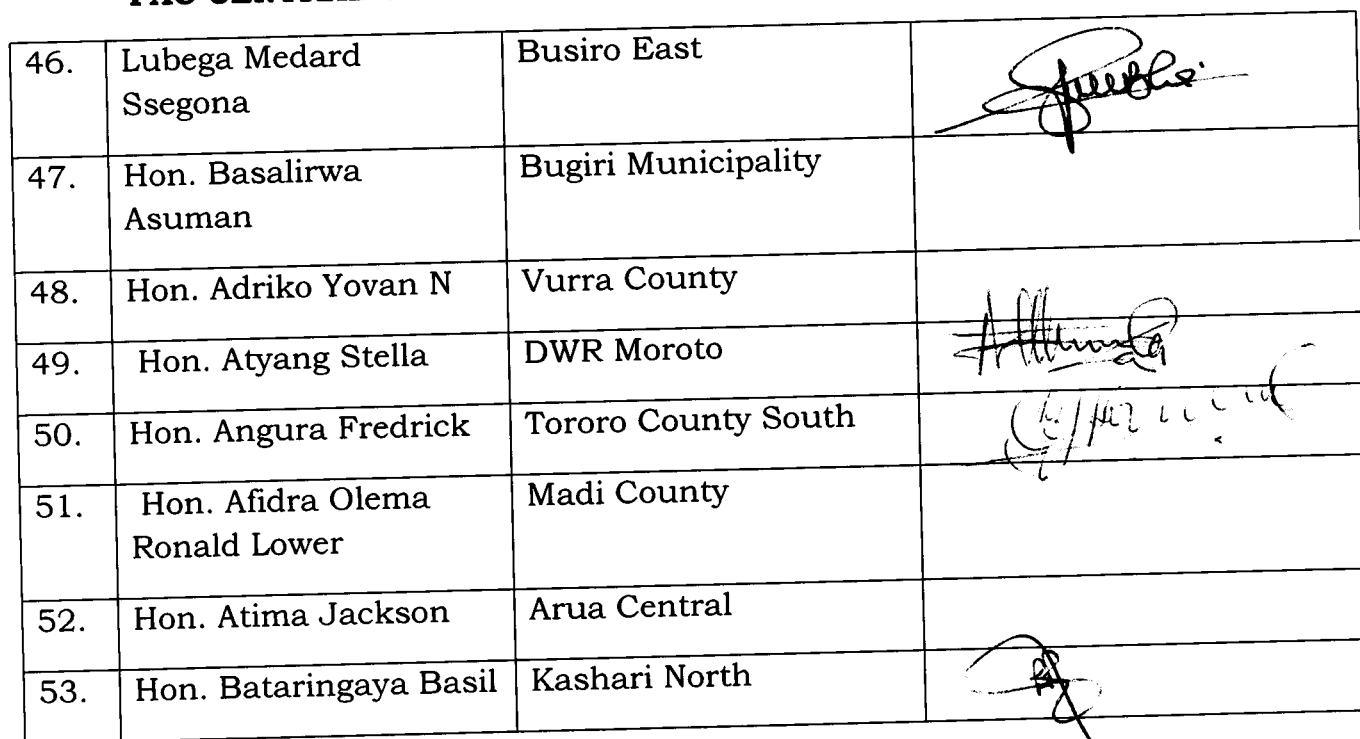 46. Lubega Medard Busiro East
Ssegona
47. Hon. Basalirwa Bugiri Municipality
Asuman
48. Hon. Adriko Yovan N Vurra County
49. Hon. Atyang Stella DWR Moroto
50. Hon. Angura Fredrick Tororo County South
51. Hon. Afidra Olema Madi County
Ronald Lower
52. Hon. Atima Jackson Arua Central
53. Hon. Bataringaya Basil Kashari North